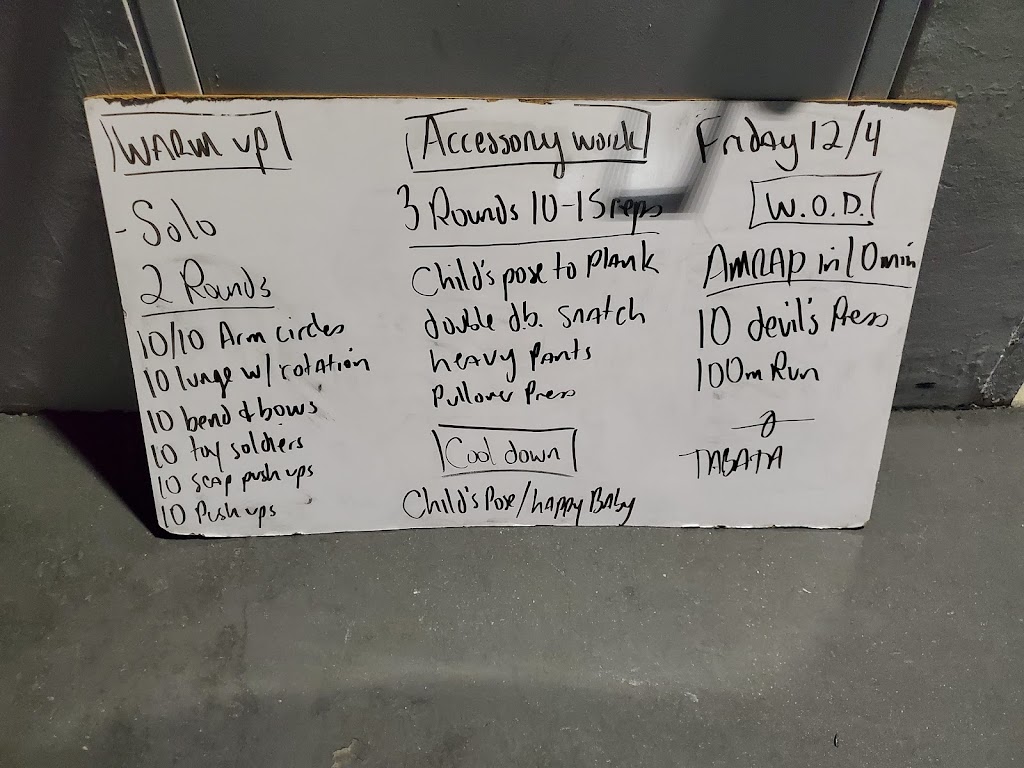 WARM UP
- Solo
2 Rounds
10/10 Arm circles
10 lunge w/ rotation
10 bend & bows
10 toy soldiers
10 scap push ups
10 Push ups
Accessory work
3 Rounds 10-15 reps
Child's pose to Plank
double d.b. snatch
heavy pants
Pullover Press
Cool down
Child's Pose/happy Baby
Friday 12/4
W.O.D.
AMRAP in 10 min
10 devil's Press
100m Run
TABATA